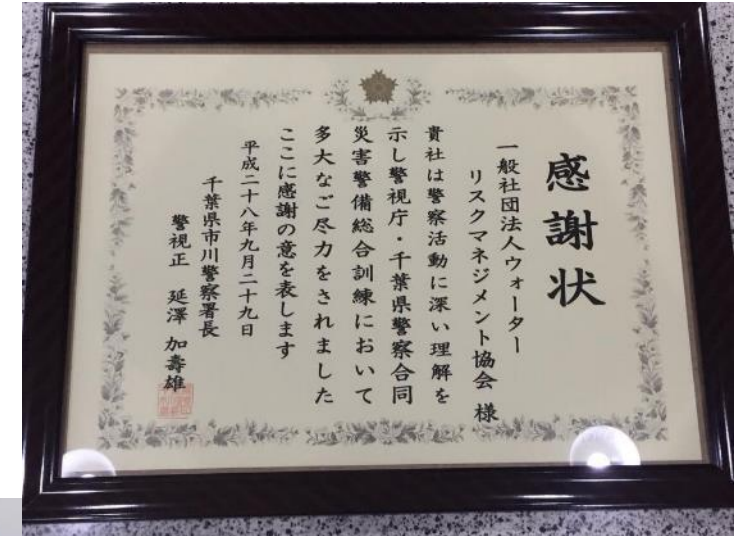 感謝状
一般社団法人ウォーター
リスクマネジメント協会 様
貴社は警察活動に深い理解を
示し警視庁・千葉県警察合同
災害警備総合訓練において
多大なご尽力をされました
ここに感謝の意を表します
平成二十八年九月二十九日
千葉県市川警察署長
警視正 延澤 加壽雄